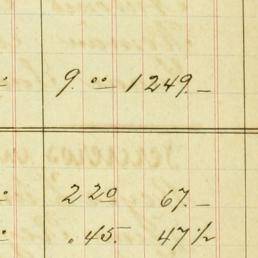 9.00 1249.–
2 20 67.–
.45. 47 1/2